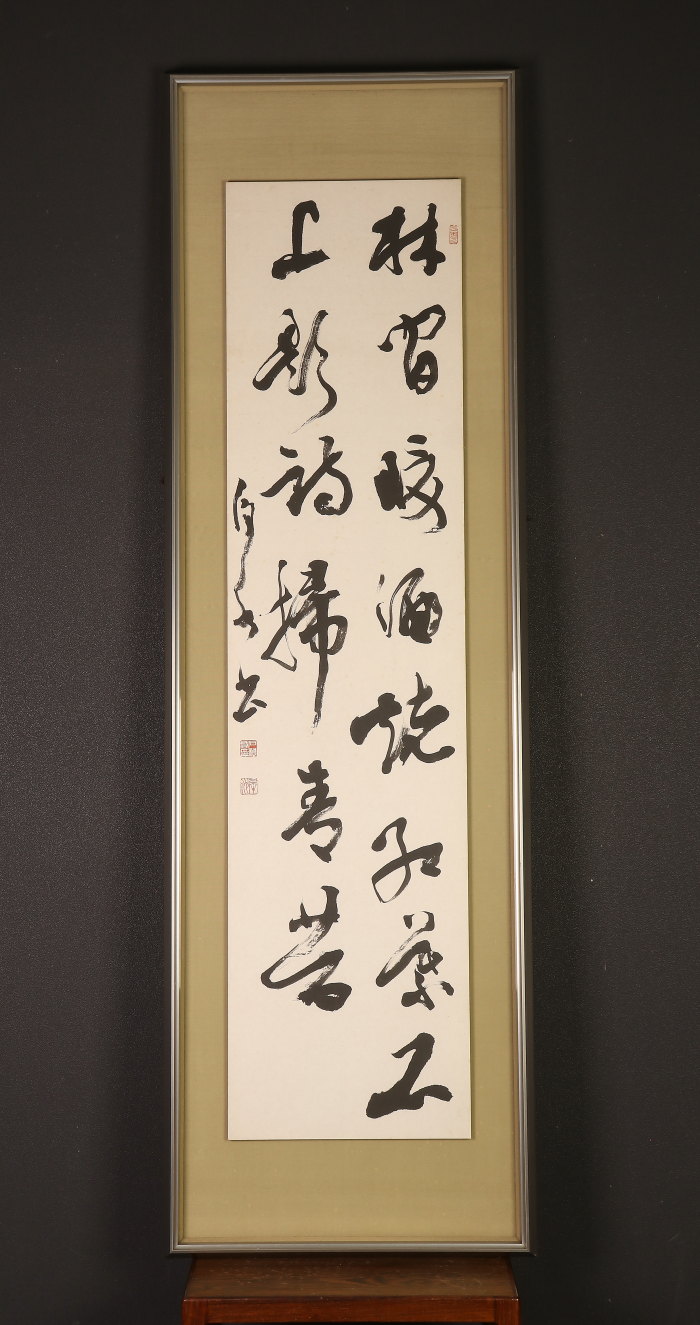 林間暖酒燒紅葉石
上題詩掃青苔
書